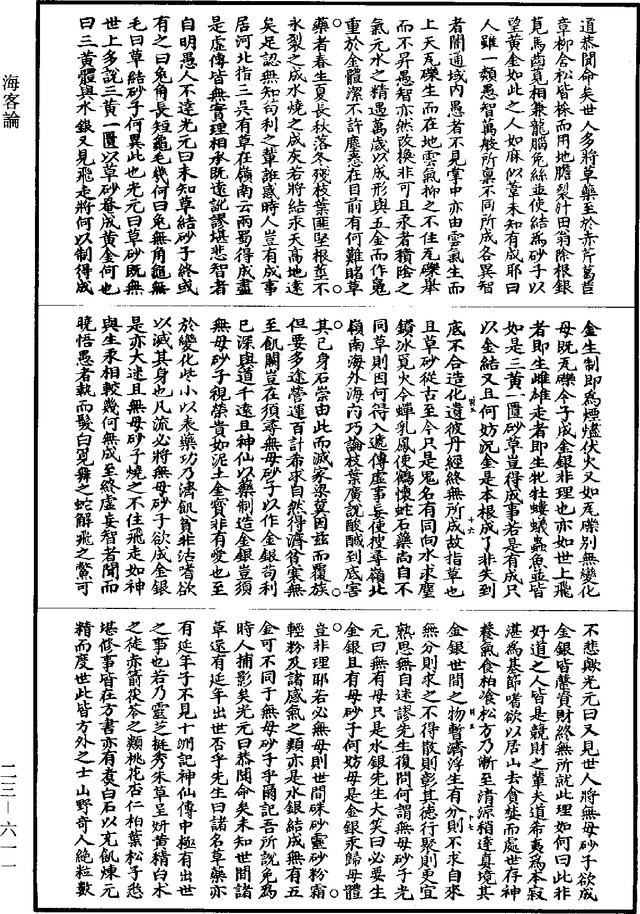 海客論
道恭聞命矣世人多將草藥至於赤芹萵苣
章柳合松皆檢而用地膽裂汁田翁除根銀
莧馬齒莧相兼龍腦兔絲並使結為砂子以
望黃金如此之人如麻似葦未知有成耶曰
人雖一類愚智萬般所稟不同所成各異智
者闇通域內愚者不見掌中亦由雲氣生而
上天瓦礫生而在地雲氣抑之不住瓦礫舉
而不昇愚智亦然改換非可且汞者積陰之
氣元水之精遇萬歲以成形與五金而作䰟
重於金體潔不許塵悉在目前有何難睹草
藥者春生夏長秋落冬殘枝葉匪堅根莖不
永裂之成水燒之成灰若將結汞天高地遠
矣足認無知苟利之輩誑惑時人豈有成事
居河北指三吳有草在嶺南云兩蜀得成盡
是虛傳皆無實理相承既遠訛謬堪悲智者
自明愚人不達光元曰未知草結砂子終或
有之曰兔角長短龜毛幾何曰兔無角龜無
毛曰草結砂子何異此也光元曰草砂既無
世上多說三黃一匱以草砂養成黃金何也
曰三黃體與水銀又見飛走將何以制得成
金生制即為煙爐伏火又如瓦礫別無變化
母既瓦礫令子成金銀非理也亦如世上飛
者即生雌雄走者即生牝牡螻蟻蟲魚並皆
如是三黃一匱砂草豈得成事若是有成只
以金結又且何妨況金是本根成了非失到
底不合造化遺彼丹經終無所成故指草也
且草砂從古至今只是䰟名有同向水求塵
鑽冰覓火令蟬乳鳳使鶴懷蛇石藥尚自不
同草則因何得入遞傳虛事妄使搜尋嶺北
嶺南海外海內巧論枝葉廣說酸醎到底害
其己身石崇由此而滅家梁冀因兹而覆族
但要多途營運百計希求自然得濟貧寒無
至飢闕豈在須尋無母砂子以作金銀苟利
已深與道千遠且神仙以藥制造金銀豈須
無母砂子視榮貴如泥土金寶非有愛也至
於變化此小以表藥功乃濟飢貧非沽嗜欲
以滅其身也凡流必將無母砂子欲成金銀
是亦大迷且無母砂子燒之不住飛走如神
與生汞相較幾何無成至終虛妄智者聞而
曉悟愚者執而髮白兔舞之蛇解飛之鱉可
不悲歟光元曰又見世人將無母砂子欲成
金銀皆罄資財終無所就此理如何曰此非
好道之人皆是競財之輩夫道希夷為本寂
湛為基節嗜欲以居山去貪婪而處世存神
養氣食柏飡松方乃漸至清源稍達真境其
金銀世間之物暫濟浮生有分則不求自來
無分則求之不得散則彰其德行聚則更宜
熟思無自迷謬先生復問何謂無母砂子光
元曰無有母只是水銀先生大笑曰必要生
金銀且有母砂子何妨母是金銀汞歸母體
豈非理耶若必無母則世間硃砂靈砂粉霜
輕粉及諸感氣之類亦是水銀結成無有五
金可不同于無母砂子乎爾記吾所說免為
時人捕影矣光元曰恭聞命矣未知世間諸
草還有延年出世否乎先生曰諸名草藥亦
有延年子不見十洲記神仙傳中極有出世
之事也若乃靈芝挺秀朱草呈妍黃精白朮
之徒赤箭茯苓之類桃花杏仁柏葉松子悉
堪修事皆在方書亦有煑白石以充飢煉元
精而度世此皆方外之士山野奇人絕粒數
二三－六一一